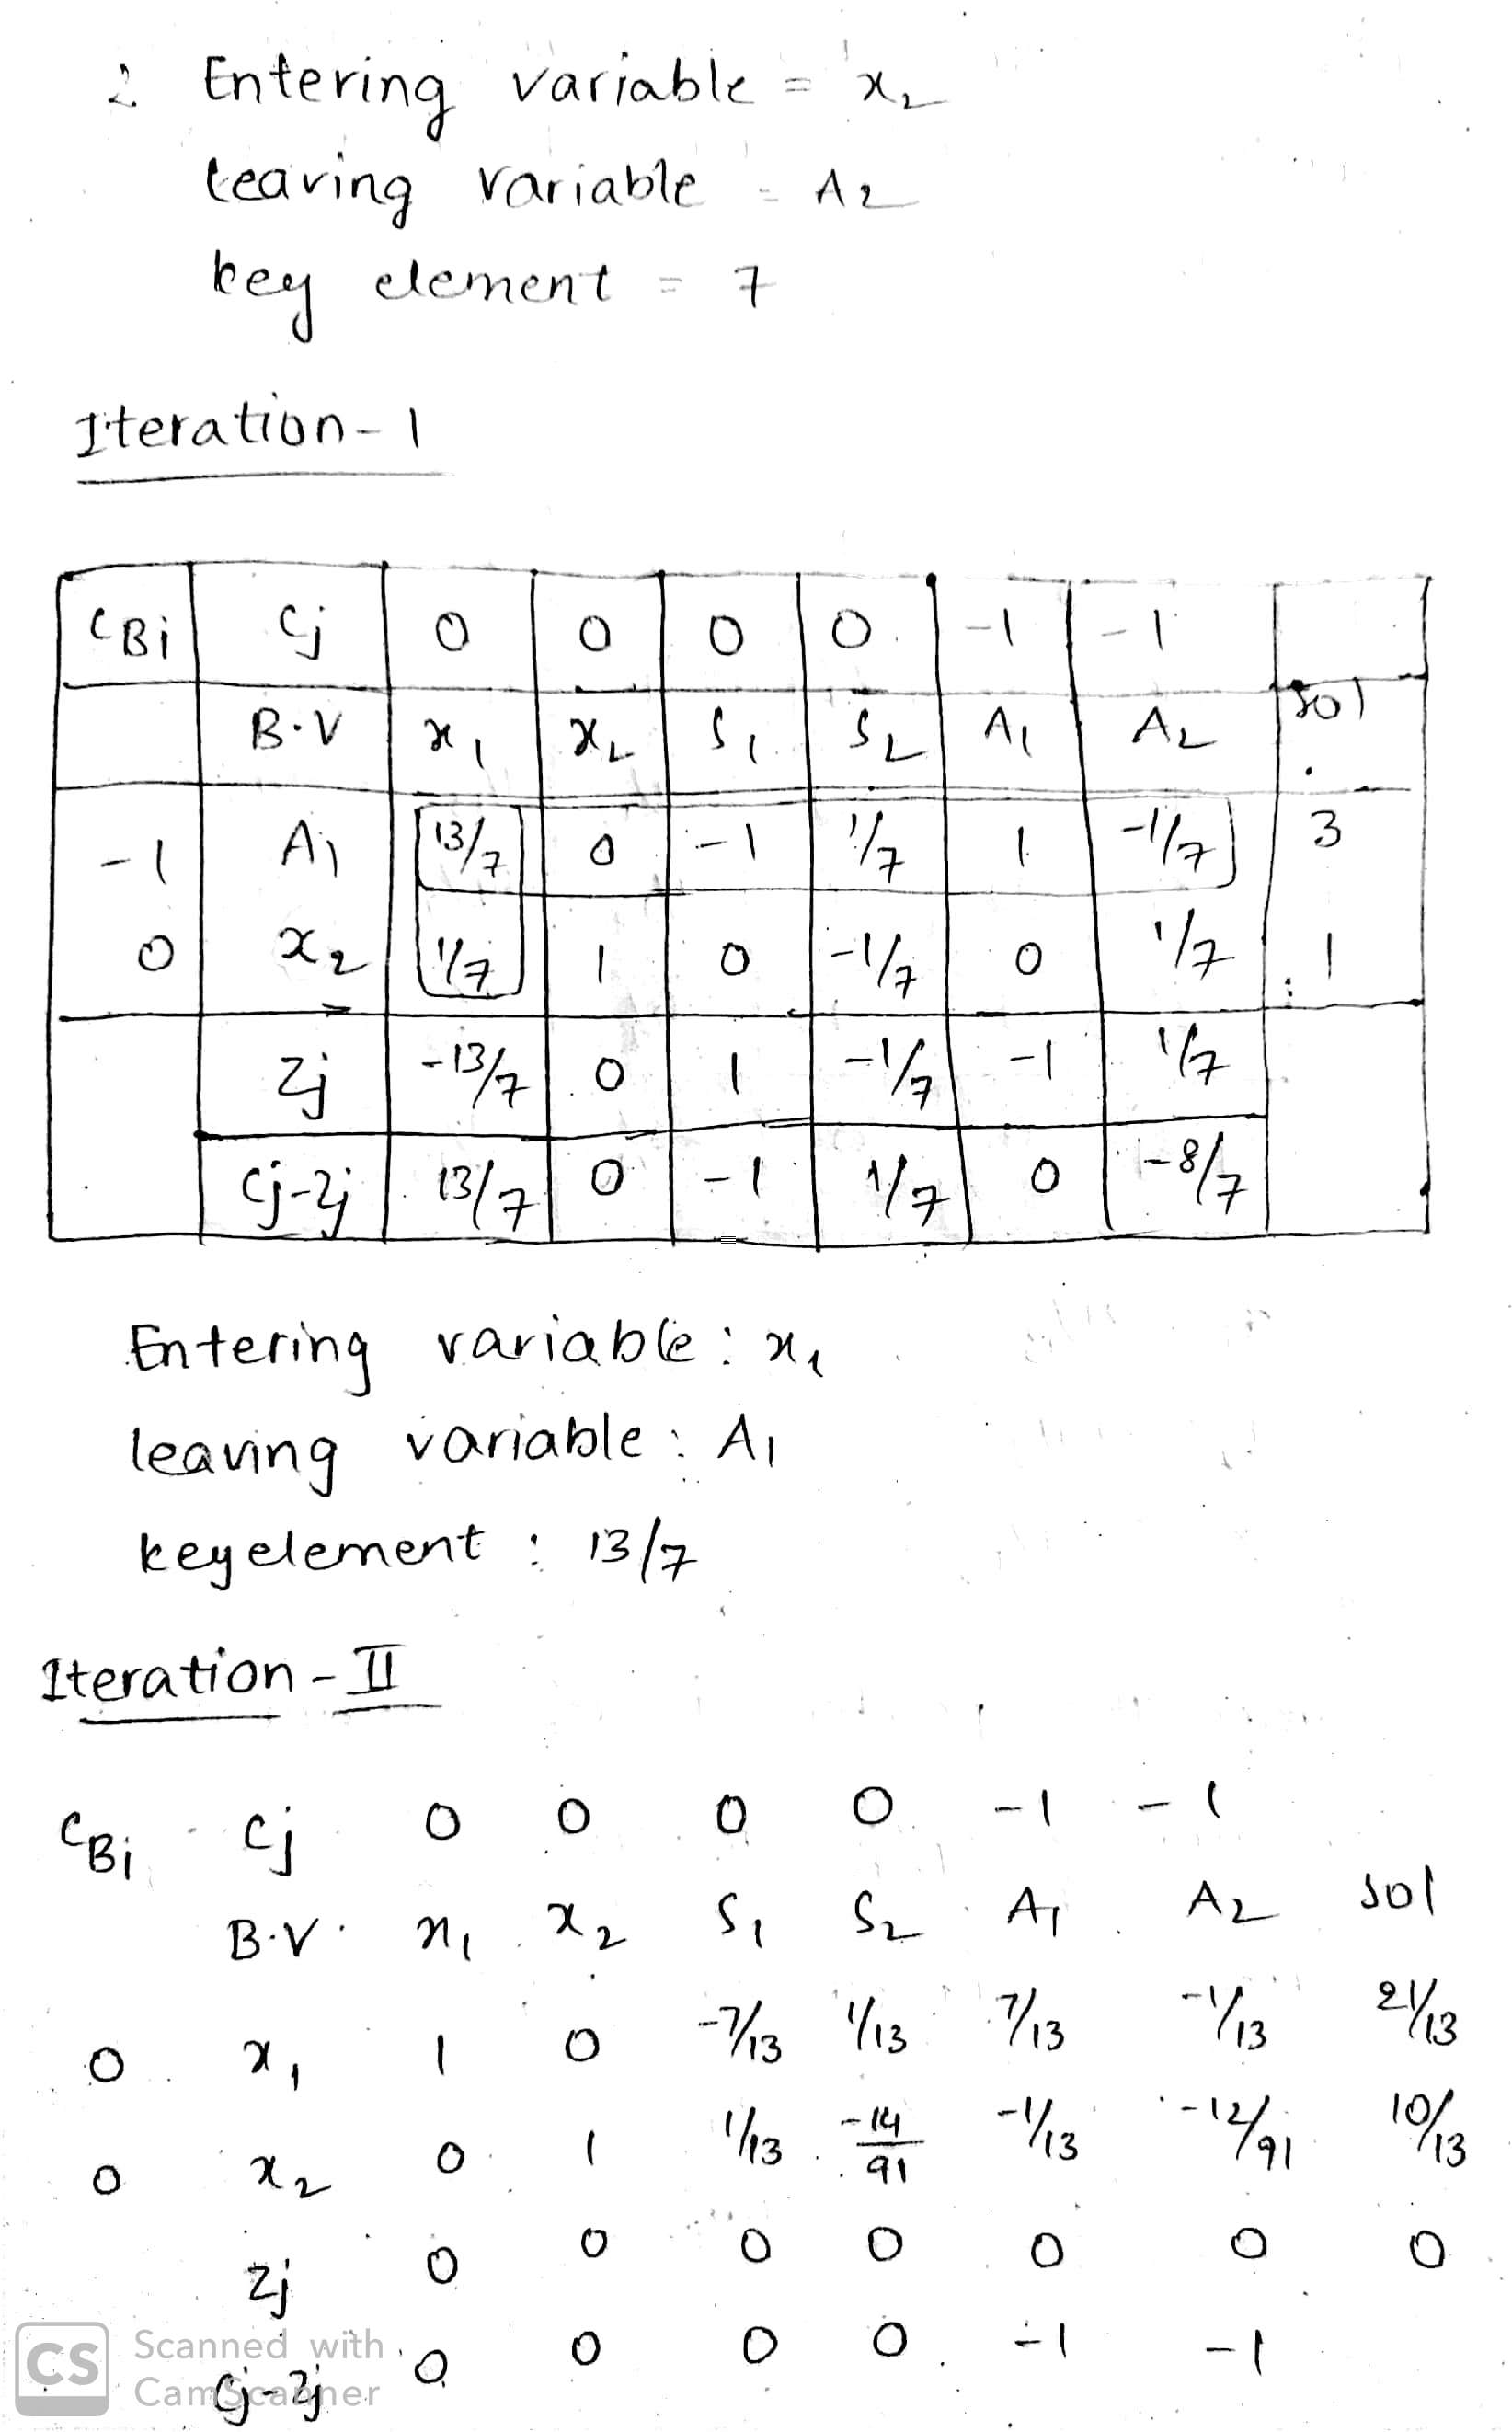 ∴ Entering variable = x₂
leaving variable = A₂
key element = 7
Iteration-1
CBi Cj 0 0 0 0 -1 -1
B.V x₁ x₂ S₁ S₂ A₁ A₂ sol
-1 A₁ 13/7 0 -1 1/7 1 -1/7 3
0 x₂ 1/7 1 0 -1/7 0 1/7 1
Zj -13/7 0 1 -1/7 -1 1/7
Cj-Zj 13/7 0 -1 1/7 0 -8/7
Entering variable: x₁
leaving variable: A₁
key element : 13/7
Iteration-II
CBi Cj 0 0 0 0 -1 -1
B.V. x₁ x₂ S₁ S₂ A₁ A₂ sol
0 x₁ 1 0 -7/13 1/13 7/13 -1/13 21/13
0 x₂ 0 1 1/13 -14/91 -1/13 -12/91 10/13
Zj 0 0 0 0 0 0 0
Cj-Zj 0 0 0 0 -1 -1
CS Scanned with
CamScanner